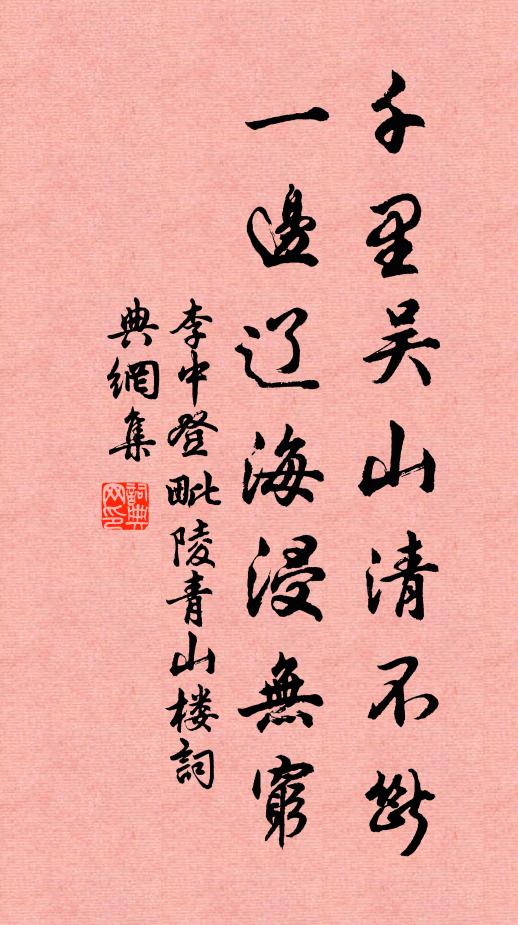 千里吴山清不断
一邊辽海浸無窮
李中登毗陵青山楼詞
典網集
詞典网印